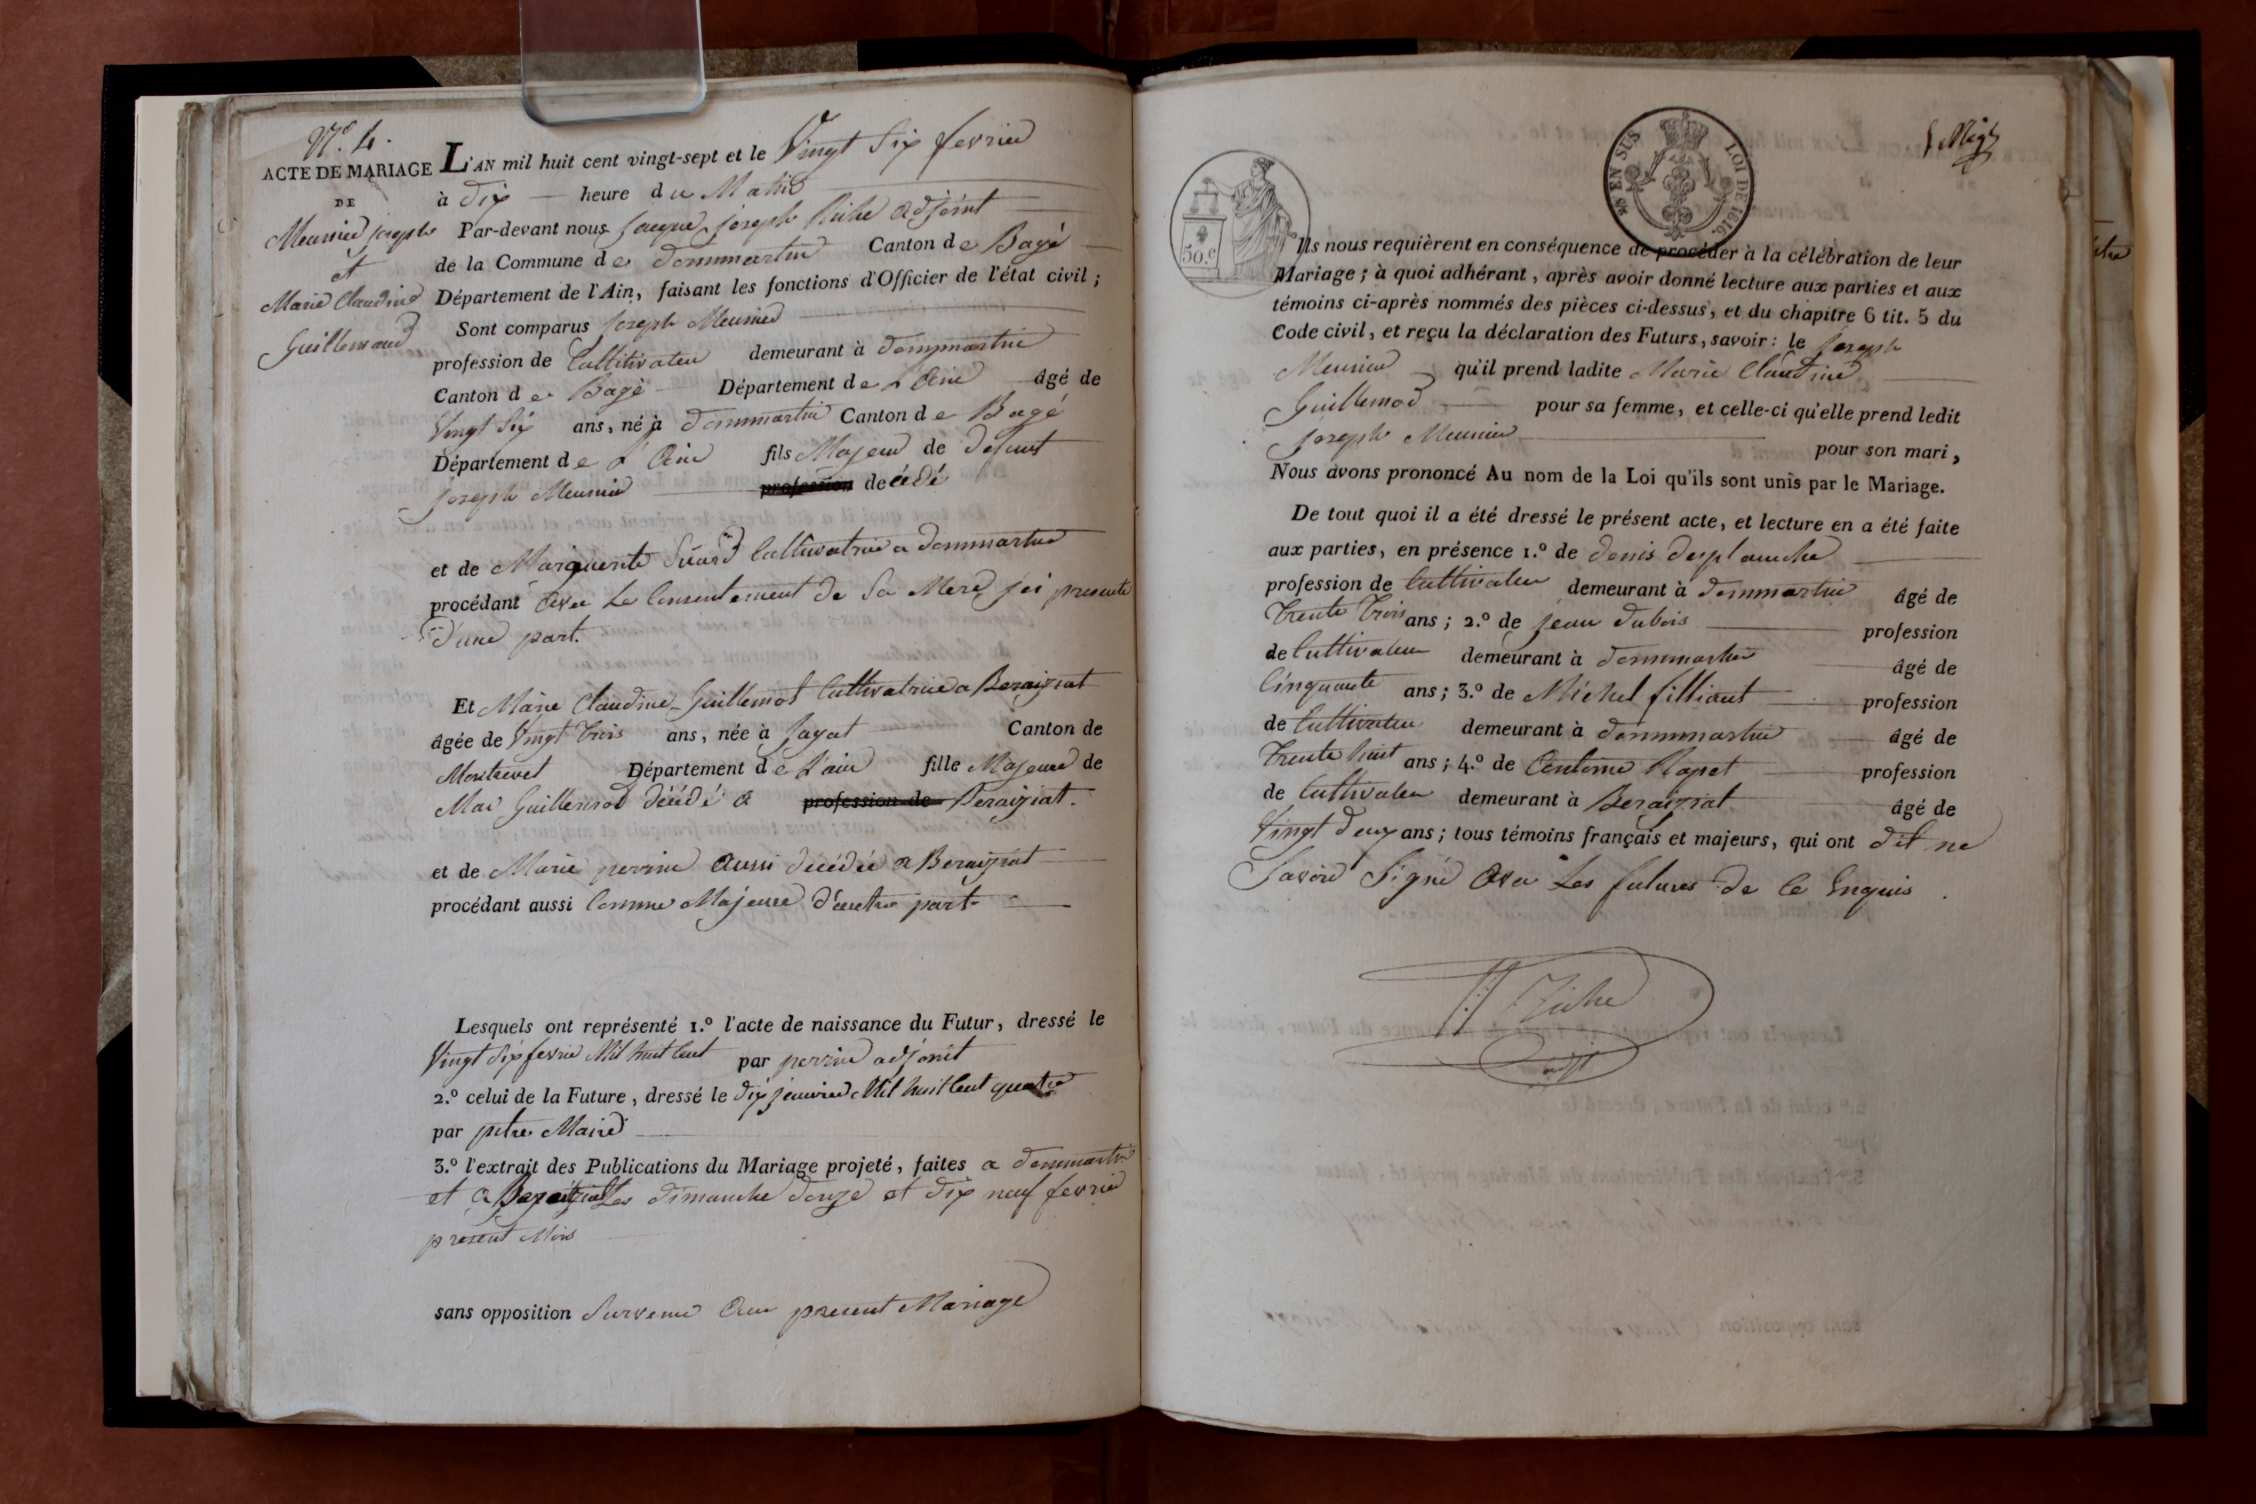 N.º 4.
ACTE DE MARIAGE
DE
Meunier joseph
et
Marie Claudine
Guillemaud
L'AN mil huit cent vingt-sept et le Vingt Six fevrier
à dix heure du Matin
Par-devant nous Jacque joseph Riche adjoint
de la Commune de dommartin Canton de Bagé
Département de l'Ain, faisant les fonctions d'Officier de l'état civil;
Sont comparus Joseph Meunier
profession de Cultivateu demeurant à dommartin
Canton de Bagé Département de L'Ain âgé de
Vingt Six ans, né à dommartin Canton de Bagé
Département de L'Ain fils Majeur de defunt
joseph Meunier profession decédé
et de Marguerite Suard Cultivatrice a dommartin
procédant Avec Le Consentement de Sa Mere, ici presente
d'une part.
Et Marie Claudine Guillemod Cultivatrice a Beraiziat
âgée de Vingt trois ans, née à Jayat Canton de
Montrevel Département de L'ain fille Majeure de
Mar Guillemod décédé a profession de Beraiziat.
et de Marie perrin Aussi decédée a Beraiziat
procédant aussi Comme Majeure d'autre part
Lesquels ont représenté 1.º l'acte de naissance du Futur, dressé le
Vingt Six fevrier Mil huit Cent par perrin adjoint
2.º celui de la Future, dressé le dix janvier Mil huit Cent quatre
par petre Maire
3.º l'extrait des Publications du Mariage projeté, faites a dommartin
et a Beraiziat Les dimanche douze et dix neuf fevrier
present Mois
sans opposition Survenu Au present Mariage
EN SUS LOI DE 1816.
50.c
Ils nous requièrent en conséquence de procéder à la célébration de leur
Mariage; à quoi adhérant, après avoir donné lecture aux parties et aux
témoins ci-après nommés des pièces ci-dessus, et du chapitre 6 tit. 5 du
Code civil, et reçu la déclaration des Futurs, savoir: le Joseph
Meunier qu'il prend ladite Marie Claudine
Guillemod pour sa femme, et celle-ci qu'elle prend ledit
Joseph Meunier pour son mari,
Nous avons prononcé Au nom de la Loi qu'ils sont unis par le Mariage.
De tout quoi il a été dressé le présent acte, et lecture en a été faite
aux parties, en présence 1.º de denis desplanche
profession de Cultivateu demeurant à dommartin âgé de
trente trois ans; 2.º de jean dubois profession
de Cultivateu demeurant à dommartin âgé de
Cinquante ans; 3.º de Michel filliaut profession
de Cultivateu demeurant à dommartin âgé de
trente huit ans; 4.º de Antoine Rapet profession
de Cultivateu demeurant à Beraiziat âgé de
Vingt deux ans; tous témoins français et majeurs, qui ont dit ne
Savoir Signé Avec Les futures de Ce Enquis.
Riche
adjt